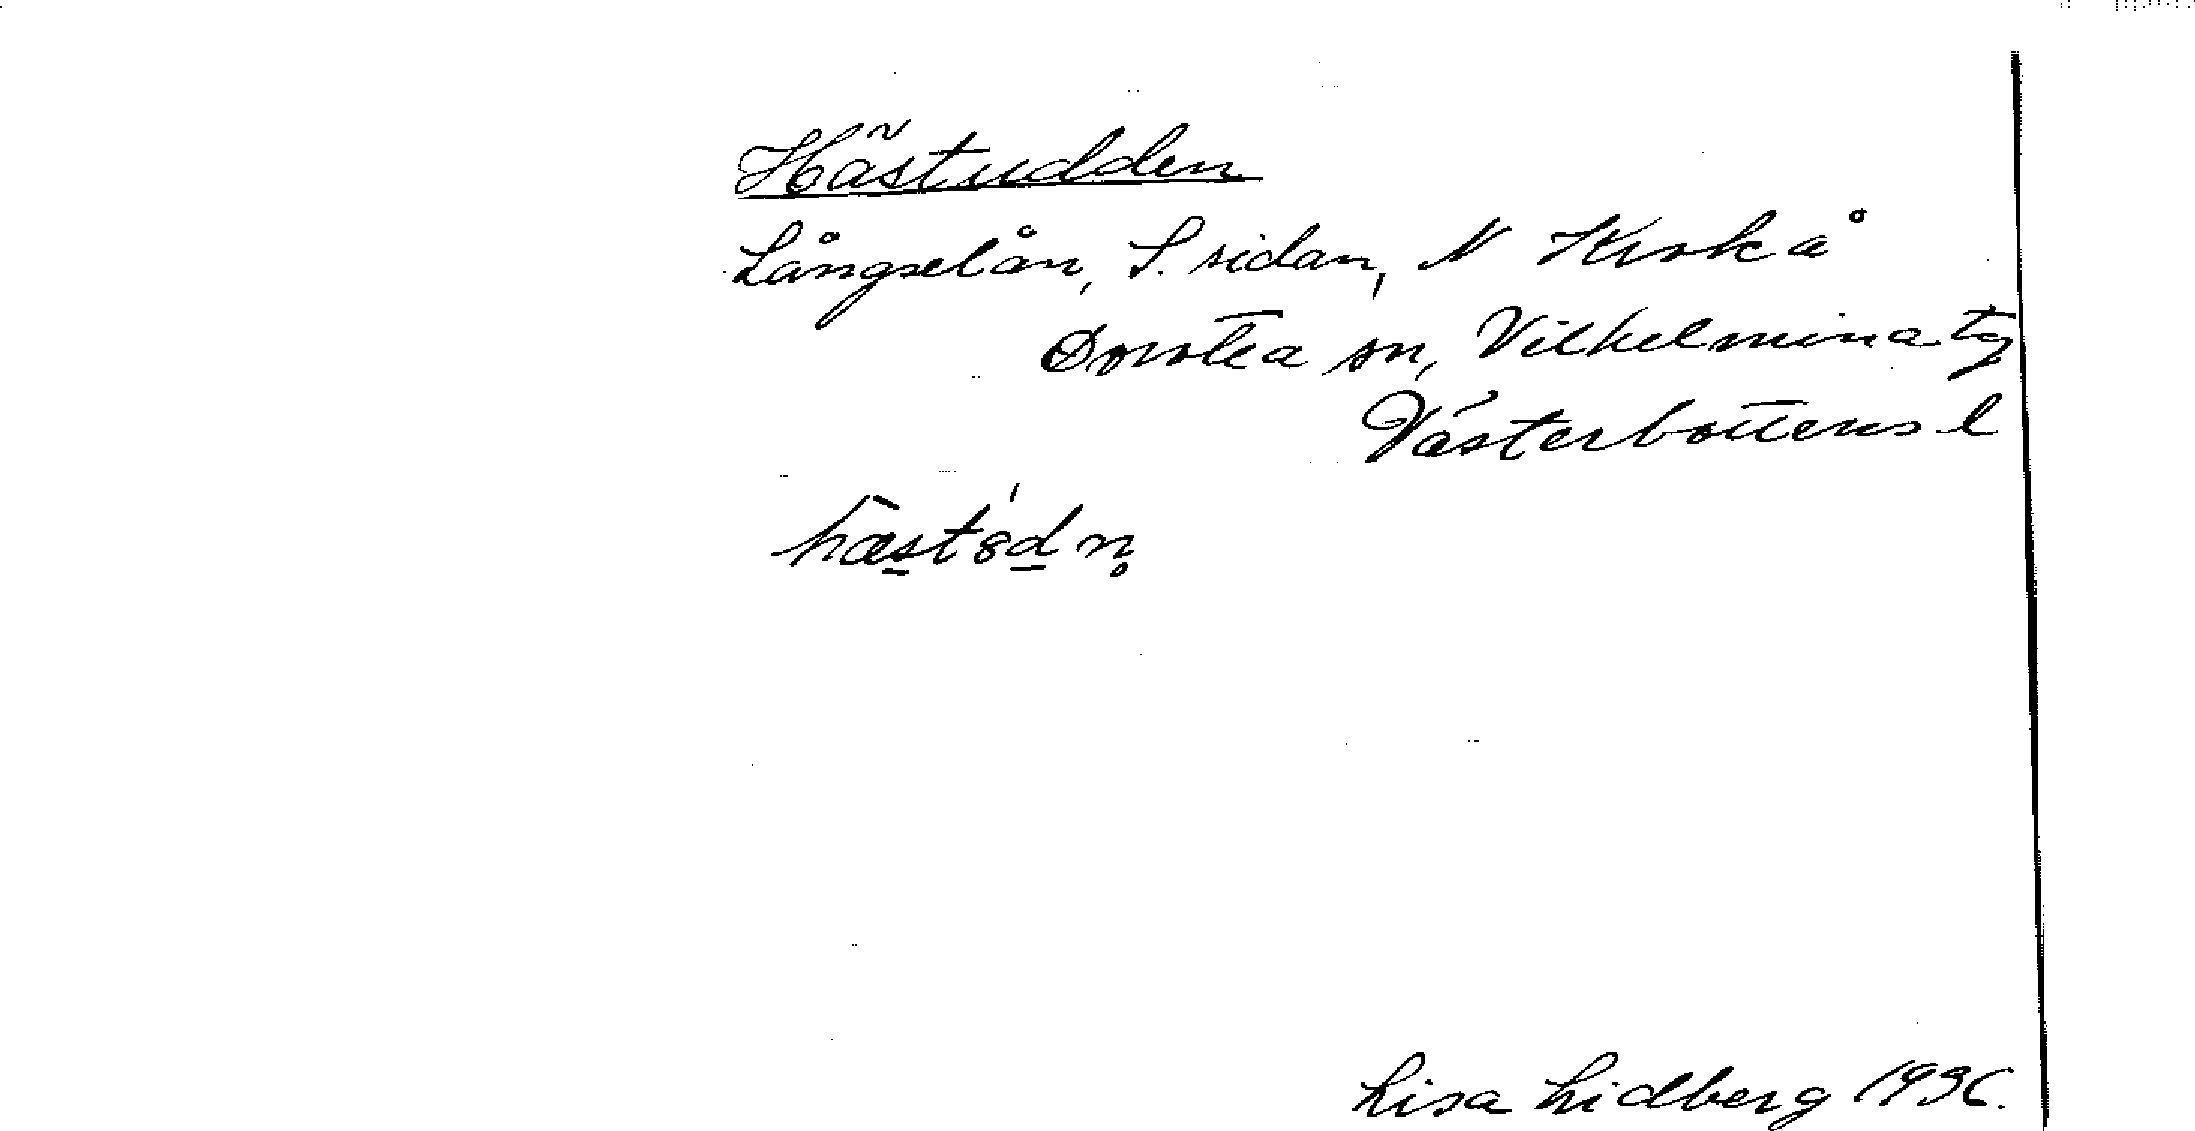 Hästudden
Långselån, S. sidan, N Krokå
Dorotea sn, Vilhelmina tg
Västerbottens l
Lisa Lidberg 1936.